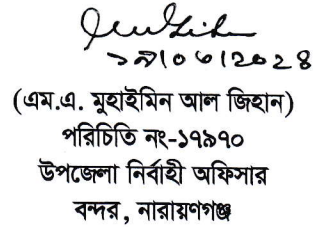 ১৯/০৬/২০২৪
(এম.এ. মুহাইমিন আল জিহান)
পরিচিতি নং-১৭৯৭০
উপজেলা নির্বাহী অফিসার
বন্দর, নারায়ণগঞ্জ